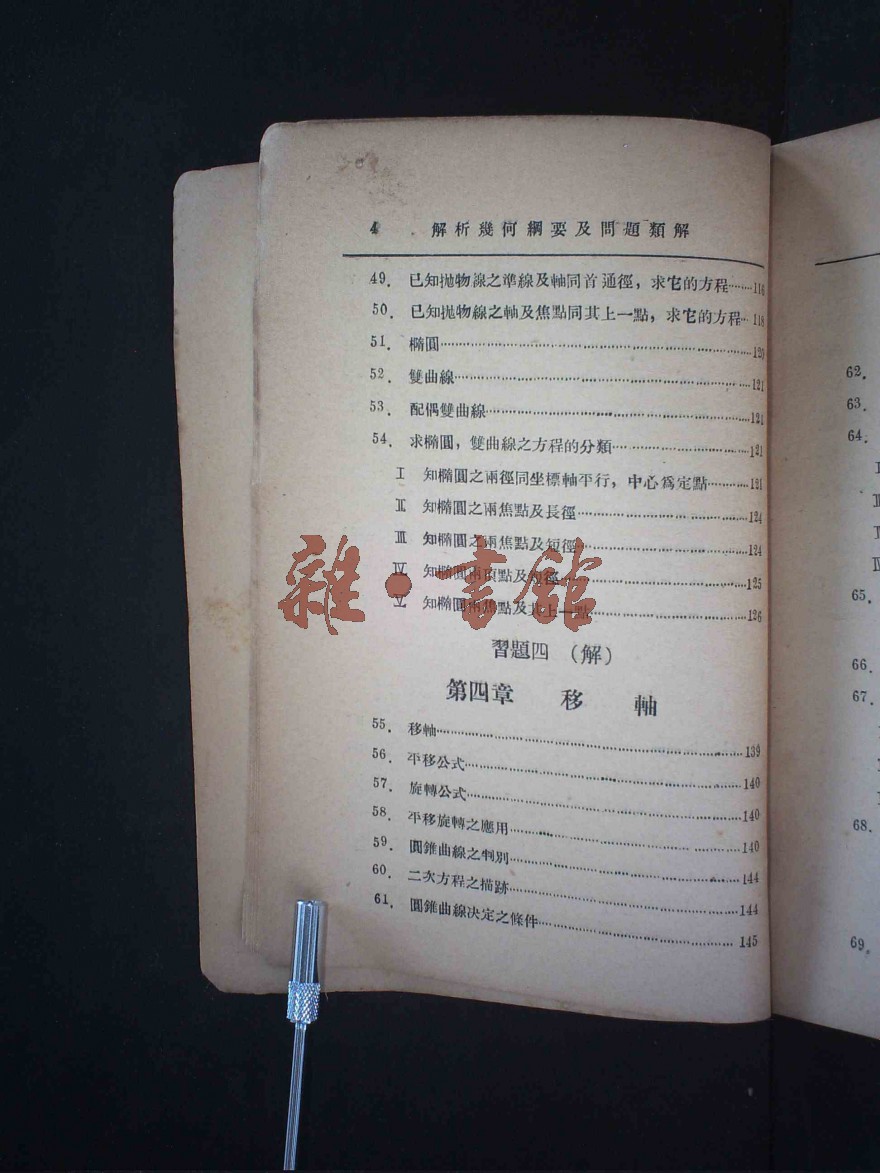 4 解析幾何綱要及問題類解
49. 已知拋物線之準線及軸同首通徑，求它的方程……116
50. 已知拋物線之軸及焦點同其上一點，求它的方程…118
51. 橢圓……120
52. 雙曲線……121
53. 配偶雙曲線……121
54. 求橢圓，雙曲線之方程的分類……121
I 知橢圓之兩徑同坐標軸平行，中心爲定點……121
II 知橢圓之兩焦點及長徑……124
III 知橢圓之兩焦點及短徑……124
IV 知橢圓兩頂點及短徑……125
V 知橢圓兩焦點及其上一點……126
雜·書館
習題四 (解)
第四章 移軸
55. 移軸……139
56. 平移公式……140
57. 旋轉公式……140
58. 平移旋轉之應用……140
59. 圓錐曲線之判別……144
60. 二次方程之描跡……144
61. 圓錐曲線決定之條件……145
62.
63.
64.
65.
66.
67.
68.
69.